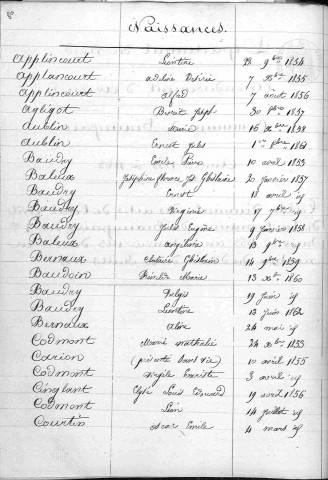 Naissances.
Applincourt Léontine 28 9bre 1854
Applancourt Adeline Désirée 7 Xbre 1855
Applincourt Alfred 7 août 1856
Agligot Benoit Joseph 30 1857
Aublin Marie 16 Xbre 1858
Aublin Ernest Jules 1er 1861
Baudry Emile Pierre 10 avril 1853
Baleux Joséphine Florence Ghislaine 20 janvier 1857
Baudry Ernest 11 avril id
Baudry Virginie 17 7bre id
Baudry Jules Eugène 9 janvier 1858
Baleux Angelina 13 9bre id
Bernaux Ghislain 14 9bre 1859
Baudoin Marie 13 Xbre 1860
Baudry 19 juin id
Baudry Léontine 13 juin 1862
Bernaux Aline 24 mai id
Codmont Marie Nathalie 24 Xbre 1853
Carion (présenté sans vie) 10 avril 1855
Codmont 3 avril id
Cinglant Louis Edouard 19 avril 1856
Codmont Léon 14 juillet id
Courtin Oscar Emile 4 mars id